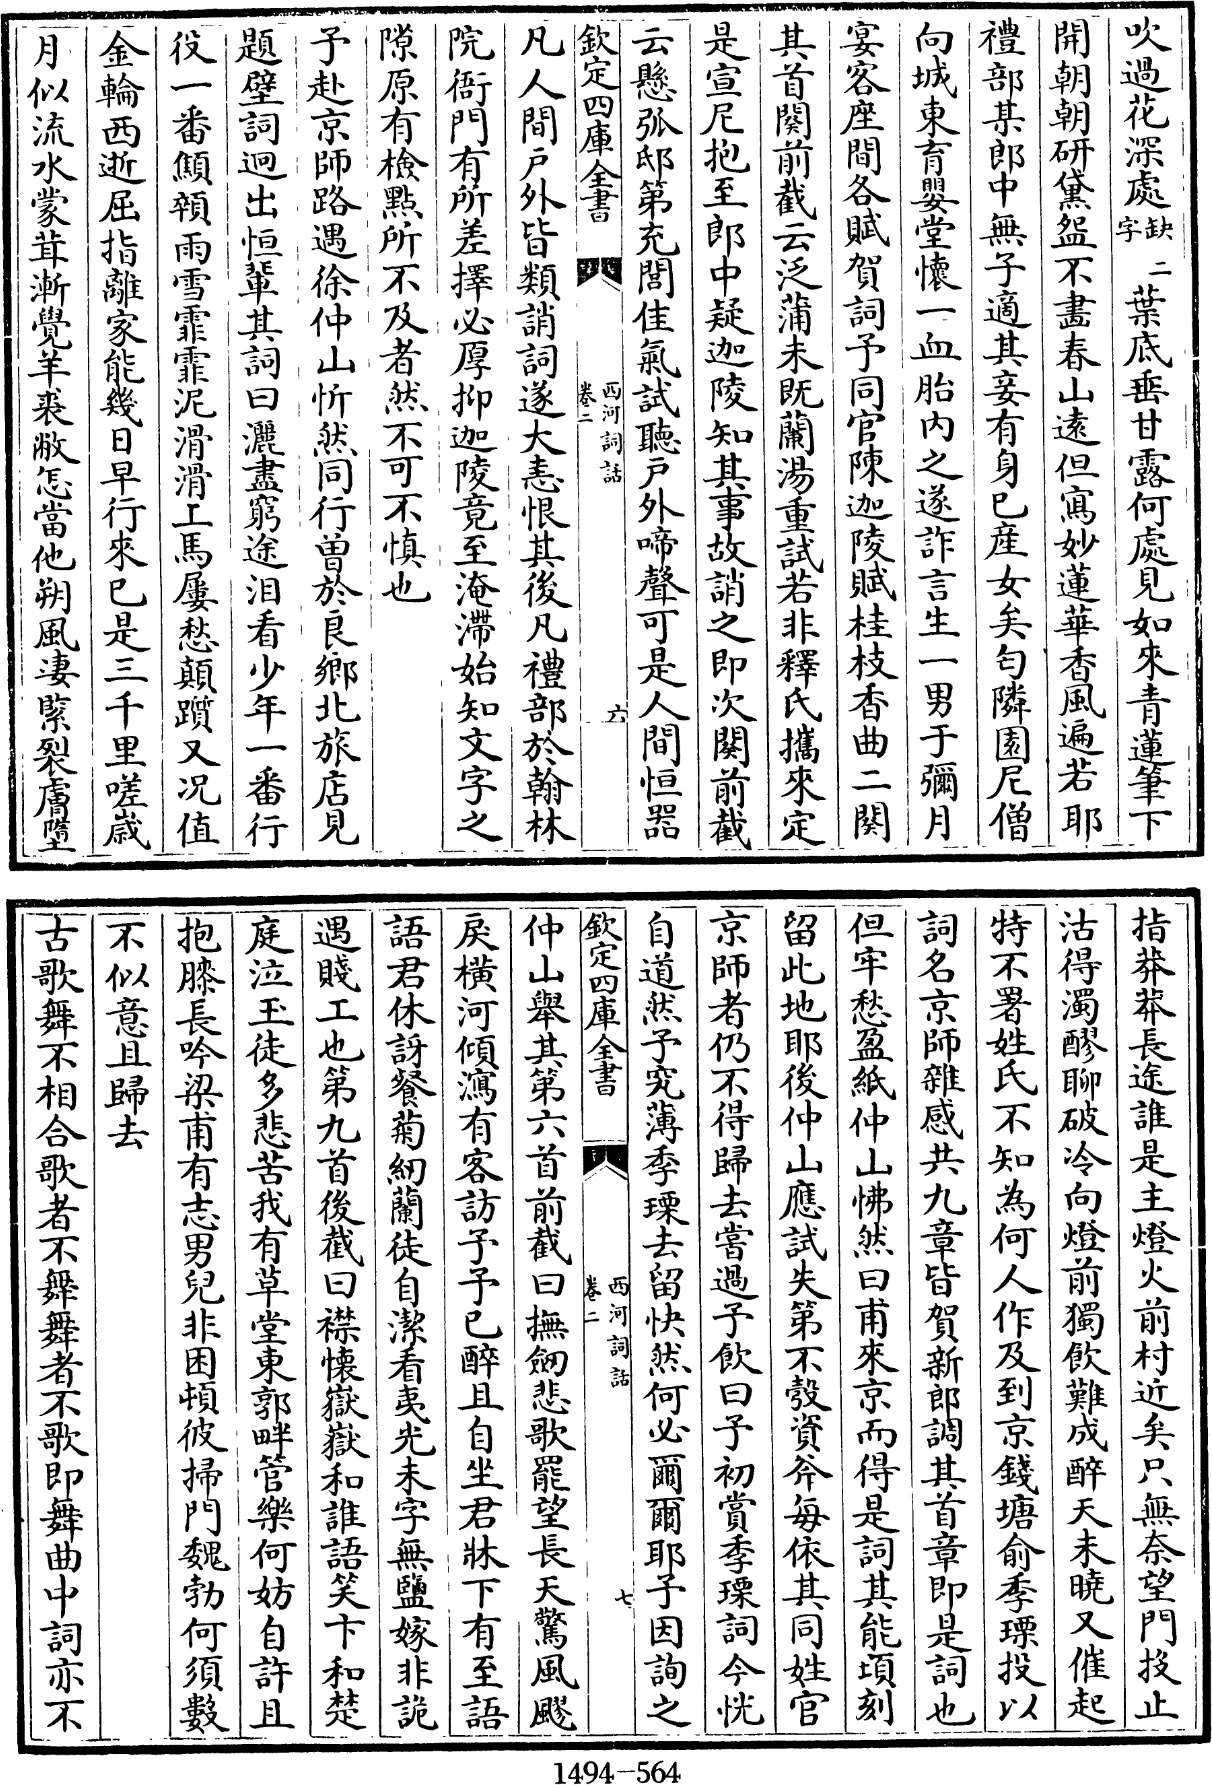 吹過花深處缺二字葉底垂甘露何處見如來青蓮筆下
開朝朝研黛盌不畵春山遠但寫妙蓮華香風遍若耶
禮部某郎中無子適其妾有身已産女矣匄隣園尼僧
向城東育嬰堂懷一血胎内之遂詐言生一男于彌月
宴客座間各賦賀詞予同官陳迦陵賦桂枝香曲二闋
其首闋前截云泛蒲未既蘭湯重試若非釋氏攜來定
是宣尼抱至郎中疑迦陵知其事故誚之即次闋前截
云懸弧邸第充閭佳氣試聽户外啼聲可是人間恒器
欽定四庫全書
西河詞話
卷二
六
凡人間户外皆類誚詞遂大恚恨其後凡禮部於翰林
院衙門有所差擇必厚抑迦陵竟至淹滯始知文字之
隙原有檢點所不及者然不可不慎也
予赴京師路遇徐仲山忻然同行曽於良鄉北旅店見
題壁詞迥出恒輩其詞曰灑盡窮途泪看少年一番行
役一番顦顇雨雪霏霏泥滑滑上馬屢愁顛躓又况值
金輪西逝屈指離家能幾日早行來已是三千里嗟歲
月似流水蒙茸漸覺羊裘敝怎當他朔風凄緊裂膚墮
指莽莽長途誰是主燈火前村近矣只無奈望門投止
沽得濁醪聊破冷向燈前獨飲難成醉天未曉又催起
特不署姓氏不知為何人作及到京錢塘俞季瑮投以
詞名京師雜感共九章皆賀新郎調其首章即是詞也
但牢愁盈紙仲山怫然曰甫來京而得是詞其能頃刻
留此地耶後仲山應試失第不彀資斧每依其同姓官
京師者仍不得歸去嘗過予飲曰子初賞季瑮詞今恍
自道然予究薄季瑮去留快然何必爾爾耶予因詢之
欽定四庫全書
西河詞話
卷二
七
仲山舉其第六首前截曰撫劒悲歌罷望長天驚風飂
戾橫河傾瀉有客訪予予已醉且自坐君牀下有至語
語君休訝餐菊紉蘭徒自潔看夷光未字無鹽嫁非詭
遇賤工也第九首後截曰襟懷嶽嶽和誰語笑卞和楚
庭泣玉徒多悲苦我有草堂東郭畔管樂何妨自許且
抱膝長吟梁甫有志男兒非困頓彼掃門魏勃何須數
不似意且歸去
古歌舞不相合歌者不舞舞者不歌即舞曲中詞亦不
1494-564